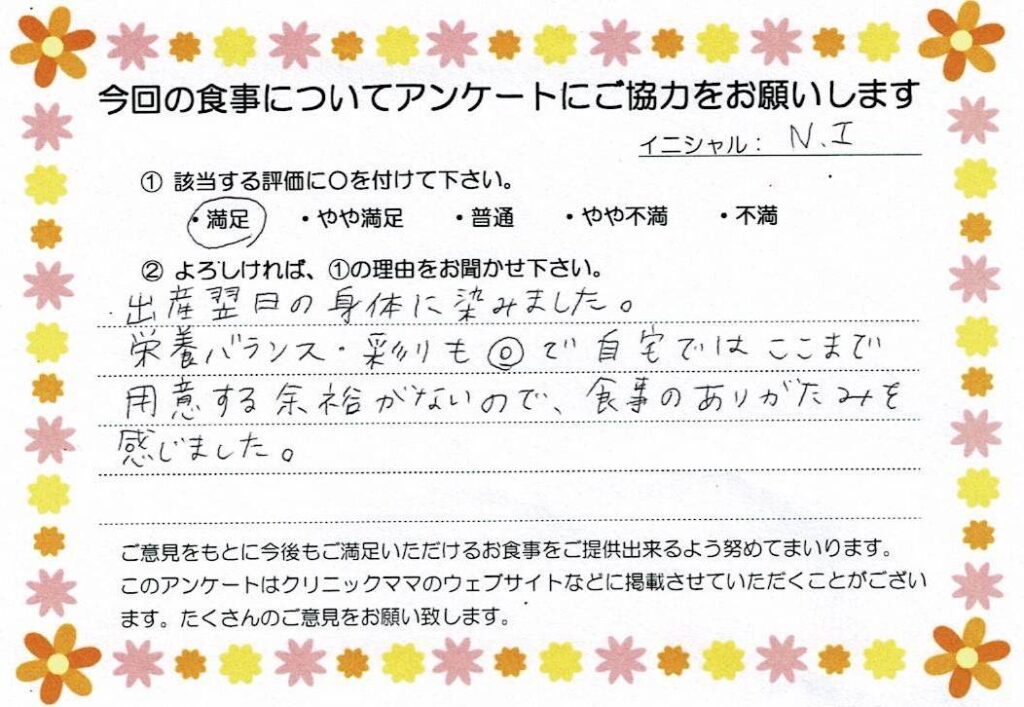 今回の食事についてアンケートにご協力をお願いします
イニシャル： N.I
① 該当する評価に〇を付けて下さい。
・満足 ・やや満足 ・普通 ・やや不満 ・不満
② よろしければ、①の理由をお聞かせ下さい。
出産翌日の身体に染みました。
栄養バランス・彩りも◎で自宅ではここまで
用意する余裕がないので、食事のありがたみを
感じました。
ご意見をもとに今後もご満足いただけるお食事をご提供出来るよう努めてまいります。
このアンケートはクリニックママのウェブサイトなどに掲載させていただくことがござい
ます。たくさんのご意見をお願い致します。